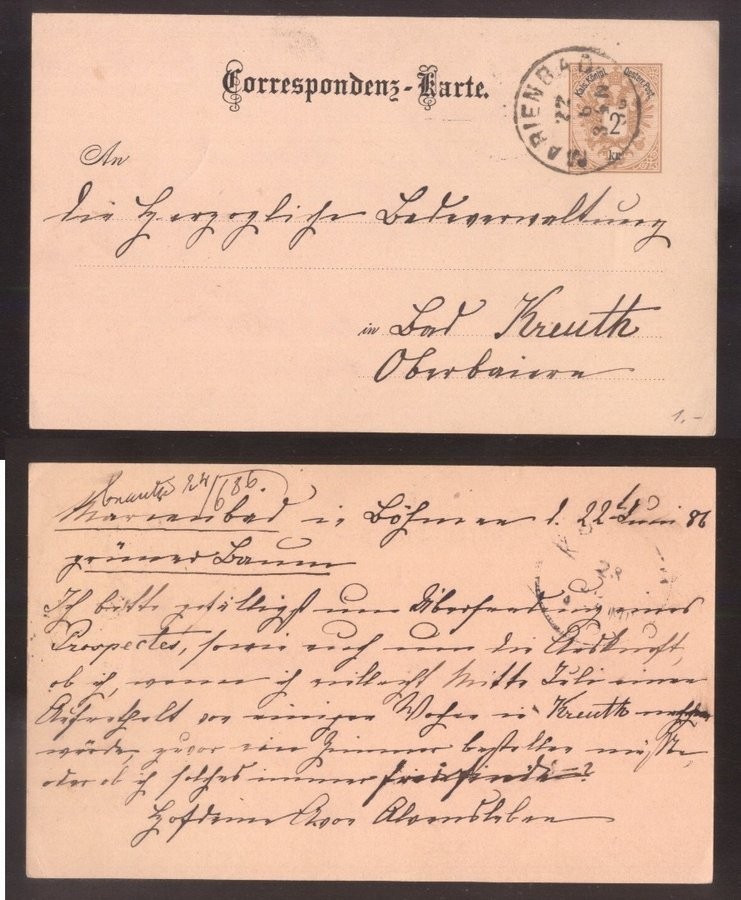 Correspondenz-Karte.
MARIENBAD
22
6
Kais. Königl. Oesterr. Post
2
kr
An
die Herzogliche Badeverwaltung
in Bad Kreuth
Oberbaiern
1.-
24/6 86
Marienbad in Böhmen d. 22 Juni 86
grüner Baum
Ich bitte gefälligst um Übersendung eines
Prospectes, sowie auch um die Auskunft,
ob ich, wenn ich vielleicht Mitte Juli einen
Aufenthalt von einigen Wochen in Kreuth machen
würde, zuvor ein Zimmer bestellen müßte,
oder ob ich solches immer finde?
Hofdame von Alvensleben